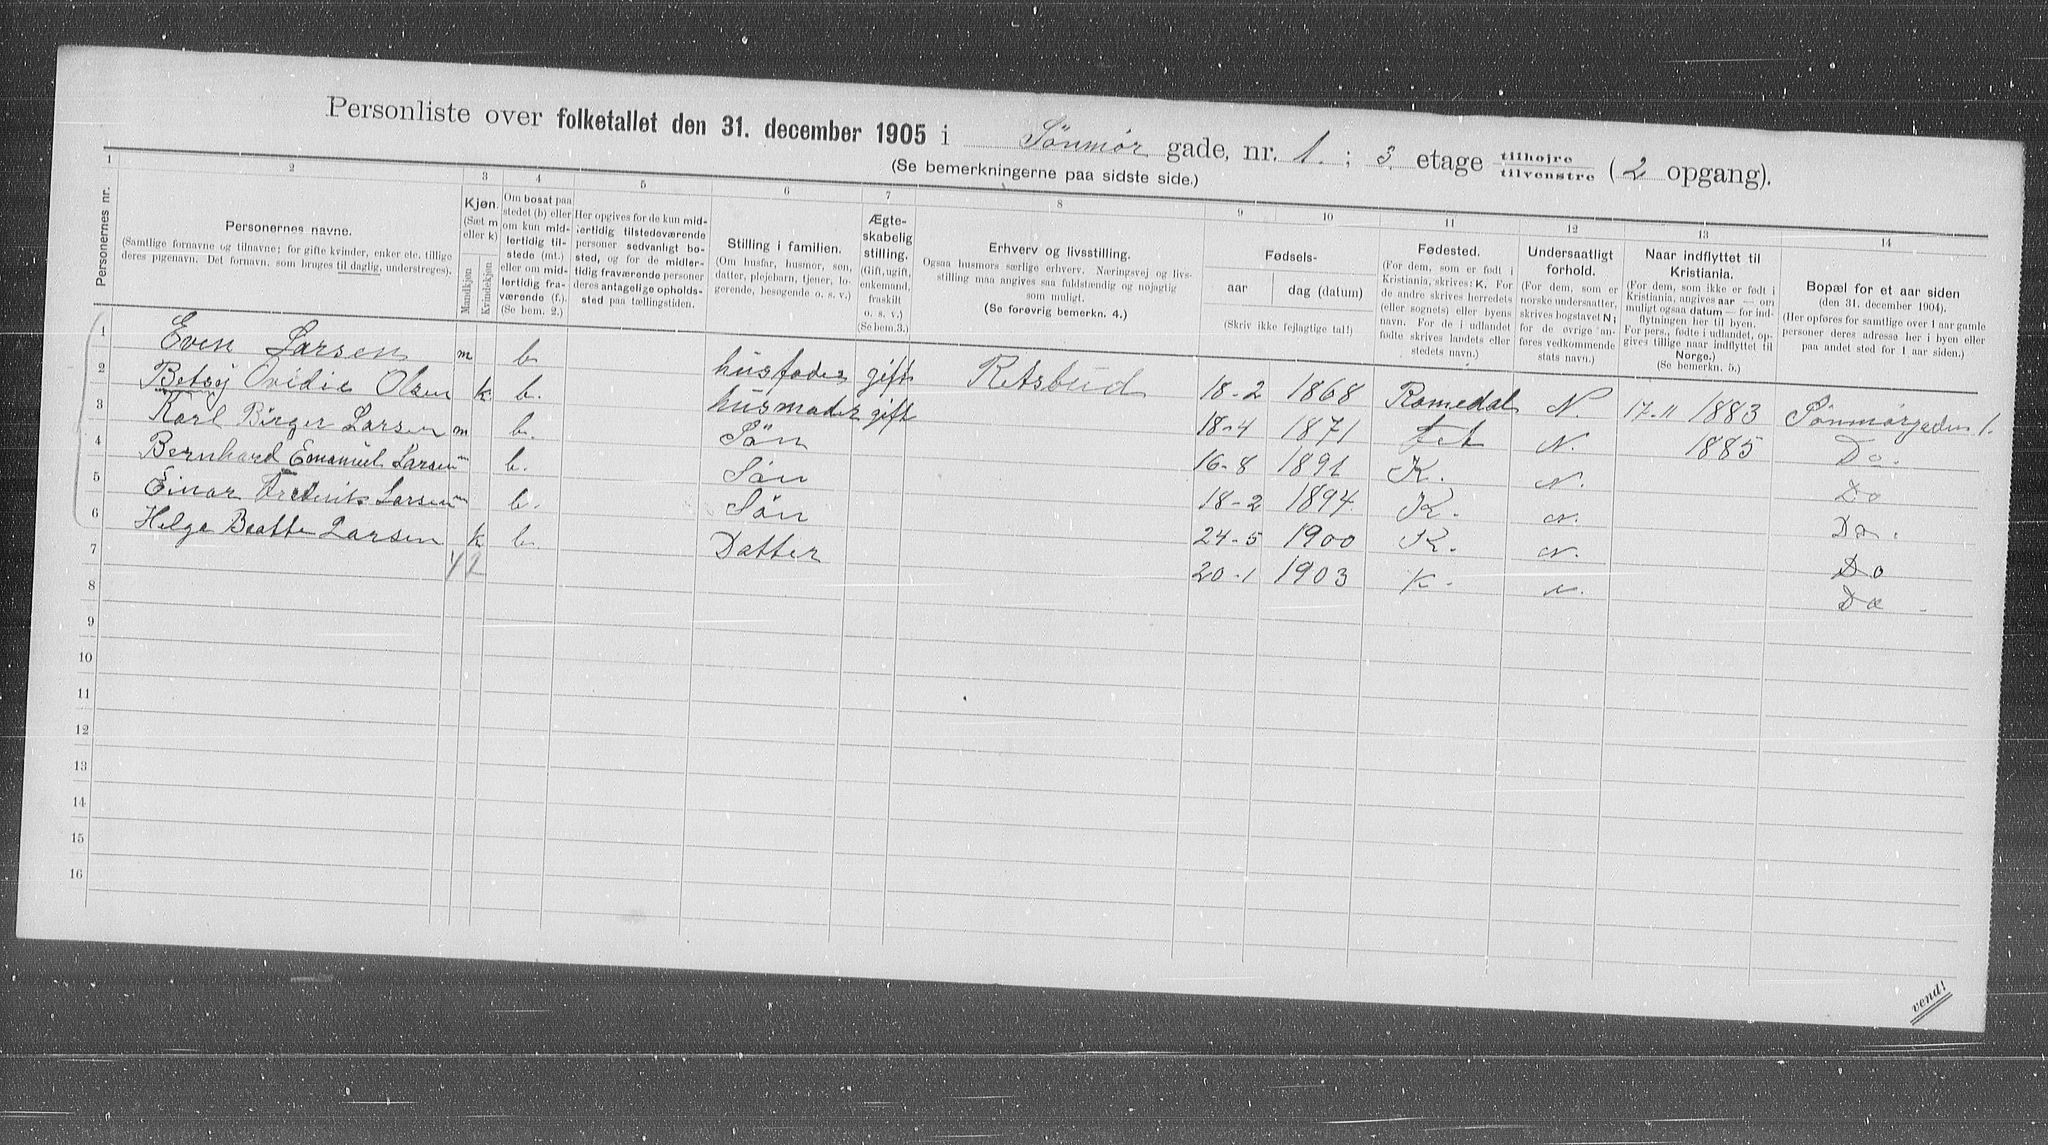 Personliste over folketallet den 31. december 1905 i Sönmör gade, nr. 1. ; 3. etage tilhøjre tilvenstre (2 opgang).
(Se bemerkningerne paa sidste side.)
1 2 3 4 5 6 7 8 9 10 11 12 13 14
Personernes nr.
Personernes navne.
(Samtlige fornavne og tilnavne; for gifte kvinder, enker etc. tillige
deres pigenavn. Det fornavn, som bruges til daglig, understreges).
Kjøn.
(Sæt m
eller k)
Mandkjøn
Kvindekjøn
Om bosat paa
stedet (b) eller
om kun mid-
lertidig til-
stede (mt.)
eller om mid-
lertidig fra-
værende (f.).
(Se bem. 2.)
Her opgives for de kun mid-
lertidig tilstedeværende
personer sedvanligt bo-
sted, og for de midler-
tidig fraværende personer
deres antagelige opholds-
sted paa tællingstiden.
Stilling i familien.
(Om husfar, husmor, søn,
datter, plejebarn, tjener, lo-
gerende, besøgende o. s. v.)
Ægte-
skabelig
stilling.
(Gift, ugift,
enkemand,
fraskilt
o. s. v.)
(Se bem. 3.)
Erhverv og livsstilling.
Ogsaa husmors særlige erhverv. Næringsvej og livs-
stilling maa angives saa fuldstændig og nøjagtig
som muligt.
(Se forøvrig bemerkn. 4.)
Fødsels-
aar dag (datum)
(Skriv ikke fejlagtige tal!)
Fødested.
(For dem, som er født i
Kristiania, skrives: K. For
de andre skrives herredets
(eller sognets) eller byens
navn. For de i udlandet
fødte skrives landets eller
stedets navn.)
Undersaatligt
forhold.
(For dem, som er
norske undersaatter,
skrives bogstavet N;
for de øvrige an-
føres vedkommende
stats navn.)
Naar indflyttet til
Kristiania.
(For dem, som ikke er født i
Kristiania, angives aar — om
muligt ogsaa datum — for ind-
flytningen her til byen.
For pers., fødte i udlandet, op-
gives tillige naar indflyttet til
Norge.)
(Se bemerkn. 5.)
Bopæl for et aar siden
(den 31. december 1904).
(Her opføres for samtlige over 1 aar gamle
personer deres adresse her i byen eller
paa andet sted for 1 aar siden.)
1 Even Larsen m b. husfader gift Retsbud 18-2 1868 Romedal N. 17-11 1883 Sönmörgaden 1.
2 Betsy Ovidie Olsen k. b. husmoder gift 18-4 1871 Fet N. 1885 Do.
3 Karl Birger Larsen m b. Sön 16-8 1891 K. N. Do
4 Bernhard Emanuel Larsen m b. Sön 18-2 1894 K. N. Do.
5 Einar Frederik Larsen m b. Sön 24-5 1900 K. N. Do
6 Helga Beatte Larsen k b. Datter 20-1 1903 K. N. Do
7
8
9
10
11
12
13
14
15
16
vend!